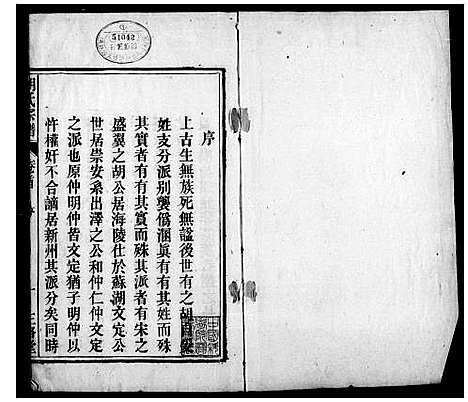 序
上古生無族死無謚後世有之胡
姓支分派別襲僞溷眞有有其姓而殊
其實者有有其實而殊其派者有宋之
盛翼之胡公居海陵仕於蘇湖文定公
世居崇安系出澤之公和仲仁仲文定
之派也原仲明仲皆文定猶子明仲以
忤權奸不合謫居新州其派分矣同時
氏宗譜
卷首
序
一
51042